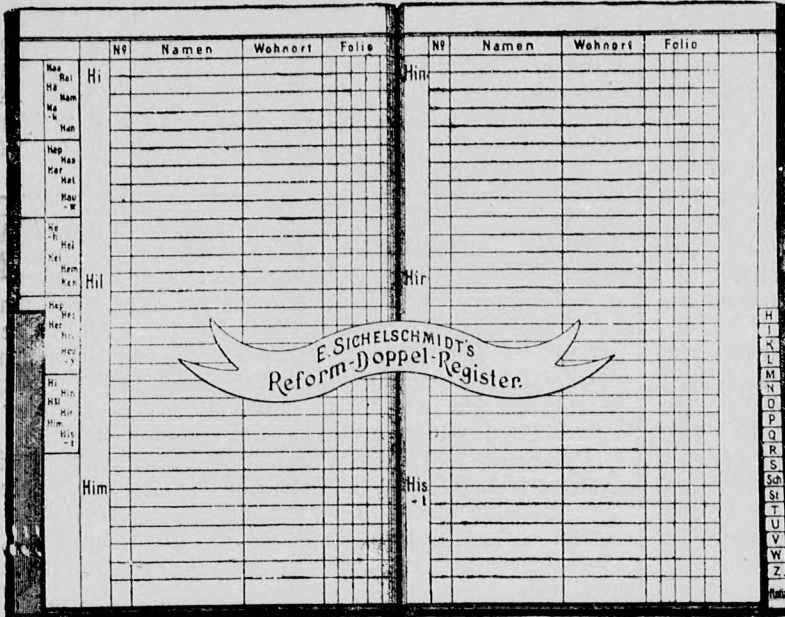 Nº Namen Wohnort Folio Nº Namen Wohnort Folio
Haa
Hal
Hä
Ham
Han
Hep
Has
Hat
Hau
-w
He
-h
Hel
Hei
Hem
Hen
Hep
Hes
Her
Heu
-y
Hi
Hin
Hil
Hir
Him
His
-t
Hi
Hil
Him
Hin
Hir
His
-t
E. SICHELSCHMIDT'S
Reform-Doppel-Register.
H
I
K
L
M
N
O
P
Q
R
S
Sch
St
T
U
V
W
Z